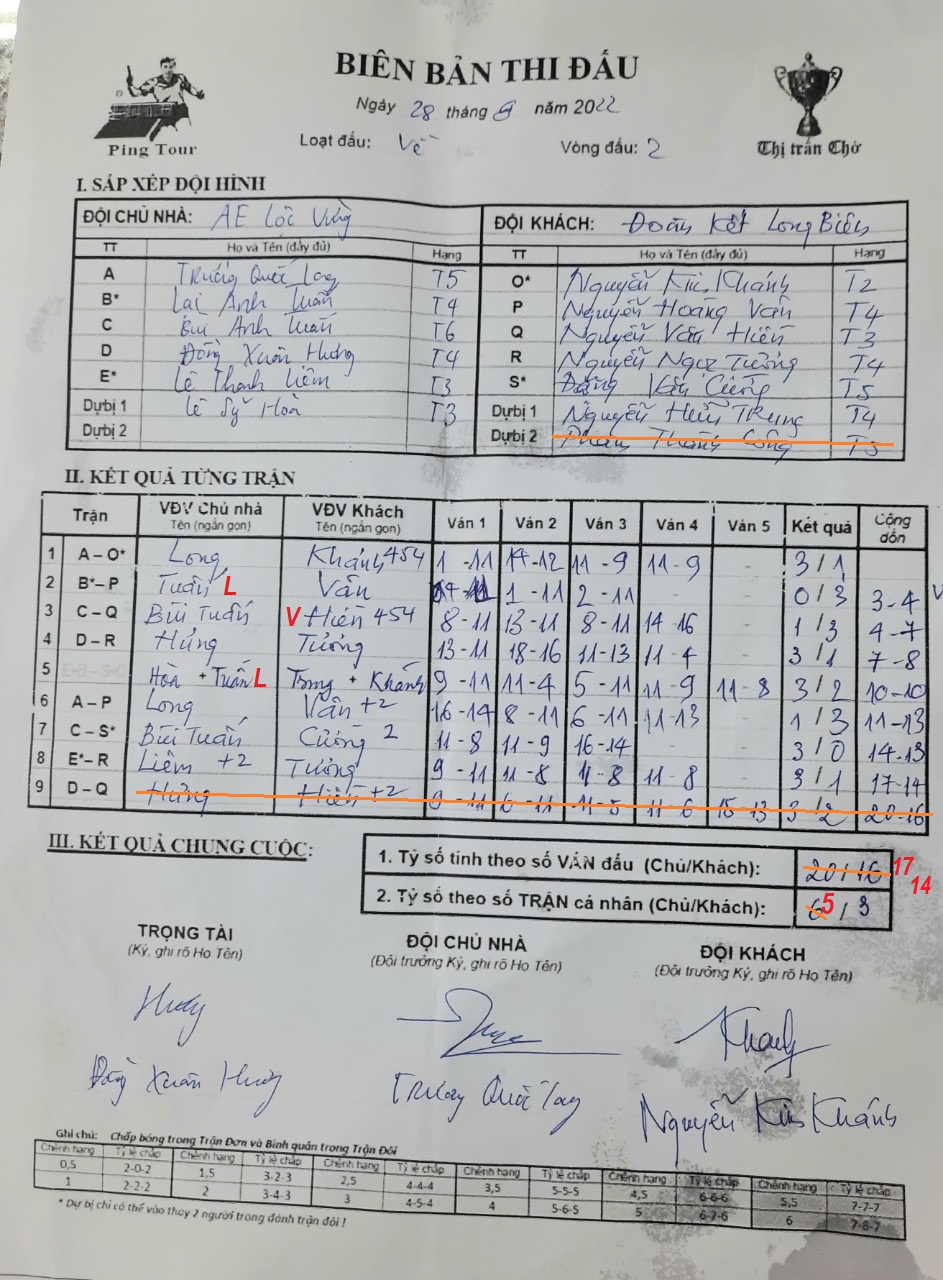 BIÊN BẢN THI ĐẤU
Ngày 28 tháng 8 năm 2022
Ping Tour
Loạt đấu: Về Vòng đấu: 2
Thị trấn Chờ
I. SẮP XẾP ĐỘI HÌNH
ĐỘI CHỦ NHÀ: AE Lộc Vừng ĐỘI KHÁCH: Đoàn Kết Long Biên
TT Họ và Tên (đầy đủ) Hạng TT Họ và Tên (đầy đủ) Hạng
A Trương Quốc Long T5 O* Nguyễn Kim Khánh T2
B* Lại Anh Tuấn T4 P Nguyễn Hoàng Vân T4
C Bùi Anh Tuấn T6 Q Nguyễn Văn Hiến T3
D Đồng Xuân Hưng T4 R Nguyễn Ngọc Tưởng T4
E* Lê Thanh Liêm T3 S* Đặng Văn Cường T5
Dự bị 1 Lê Sỹ Hoà T3 Dự bị 1 Nguyễn Hữu Trung T4
Dự bị 2 Dự bị 2 Phan Thành Công T5
II. KẾT QUẢ TỪNG TRẬN
Trận VĐV Chủ nhà Tên (ngắn gọn) VĐV Khách Tên (ngắn gọn) Ván 1 Ván 2 Ván 3 Ván 4 Ván 5 Kết quả Cộng dồn
1 A – O* Long Khánh 454 1 - 11 14 - 12 11 - 9 11 - 9 - 3 / 1
2 B* – P Tuấn L Vân 1 - 11 2 - 11 - - 0 / 3 3 - 4
3 C – Q Bùi Tuấn V Hiến 454 8 - 11 13 - 11 8 - 11 14 - 16 - 1 / 3 4 - 7
4 D – R Hưng Tưởng 13 - 11 18 - 16 11 - 13 11 - 4 - 3 / 1 7 - 8
5 Hòa + Tuấn L Trung + Khánh 9 - 11 11 - 4 5 - 11 11 - 9 11 - 8 3 / 2 10 - 10
6 A – P Long Vân +2 16 - 14 8 - 11 6 - 11 11 - 13 - 1 / 3 11 - 13
7 C – S* Bùi Tuấn Cường 2 11 - 8 11 - 9 16 - 14 - - 3 / 0 14 - 13
8 E* – R Liêm +2 Tưởng 9 - 11 11 - 8 11 - 8 11 - 8 - 3 / 1 17 - 14
9 D – Q Hưng Hiến +2 9 - 11 6 - 11 11 - 5 11 - 6 15 - 13 3 / 2 20 - 16
III. KẾT QUẢ CHUNG CUỘC:
1. Tỷ số tính theo số VÁN đấu (Chủ/Khách): 20 / 16 17 14
2. Tỷ số theo số TRẬN cá nhân (Chủ/Khách): 6 5 / 3
TRỌNG TÀI ĐỘI CHỦ NHÀ ĐỘI KHÁCH
(Ký, ghi rõ Họ Tên) (Đội trưởng Ký, ghi rõ Họ Tên) (Đội trưởng Ký, ghi rõ Họ Tên)
Khanh
Đồng Xuân Hưng Trương Quốc Long Nguyễn Kim Khánh
Ghi chú: Chấp bóng trong Trận Đơn và Bình quân trong Trận Đôi
Chênh hạng Tỷ lệ chấp Chênh hạng Tỷ lệ chấp Chênh hạng Tỷ lệ chấp Chênh hạng Tỷ lệ chấp Chênh hạng Tỷ lệ chấp Chênh hạng Tỷ lệ chấp
0,5 2-0-2 1,5 3-2-3 2,5 4-4-4 3,5 5-5-5 4,5 6-6-6 5,5 7-7-7
1 2-2-2 2 3-4-3 3 4-5-4 4 5-6-5 5 6-7-6 6 7-8-7
* Dự bị chỉ có thể vào thay 2 người trong đánh trận đôi !